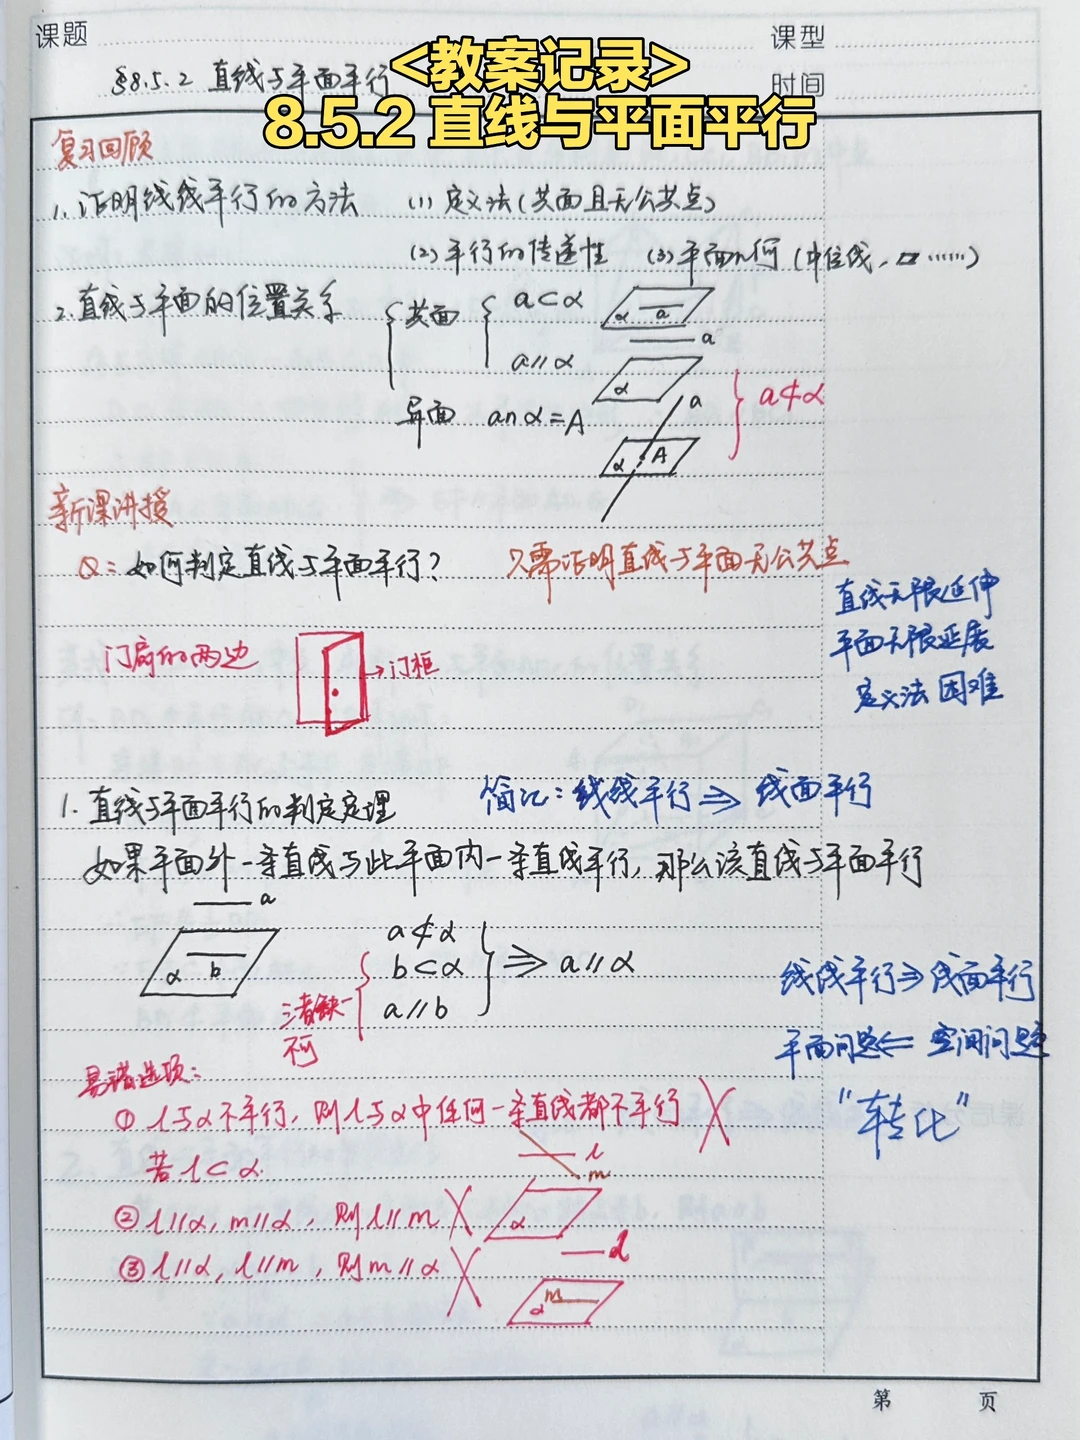 课题
课型
<教案记录>
§8.5.2 直线与平面平行
时间
8.5.2 直线与平面平行
复习回顾
1. 证明线线平行的方法 (1) 定义法(共面且无公共点)
(2) 平行的传递性 (3) 平面几何 (中位线、▱……)
2. 直线与平面的位置关系 共面 a⊂α
α a
a
a∥α
α
异面 a∩α=A
a
α A
a⊄α
新课讲授
Q: 如何判定直线与平面平行? 只需证明直线与平面无公共点
直线无限延伸
平面无限延展
定义法 困难
门扇的两边 →门框
1. 直线与平面平行的判定定理 简记: 线线平行⇒线面平行
如果平面外一条直线与此平面内一条直线平行, 那么该直线与平面平行
a
α b
a⊄α
b⊂α ⇒ a∥α
a∥b
三者缺一
不可
线线平行⇒线面平行
平面问题⇐空间问题
"转化"
易错选项:
① l与α不平行, 则l与α中任何一条直线都不平行 ╳
若l⊂α.
l
m
② l∥α, m∥α, 则l∥m ╳
α
③ l∥α, l∥m, 则m∥α ╳
l
m
α
第 页